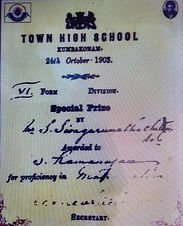 TOWN HIGH SCHOOL
KUMBAKONAM.
24th October 1903.
VI. FORM DIVISION.
Special Prize
BY
Awarded to
S. Ramanujan
for proficiency in
SECRETARY.